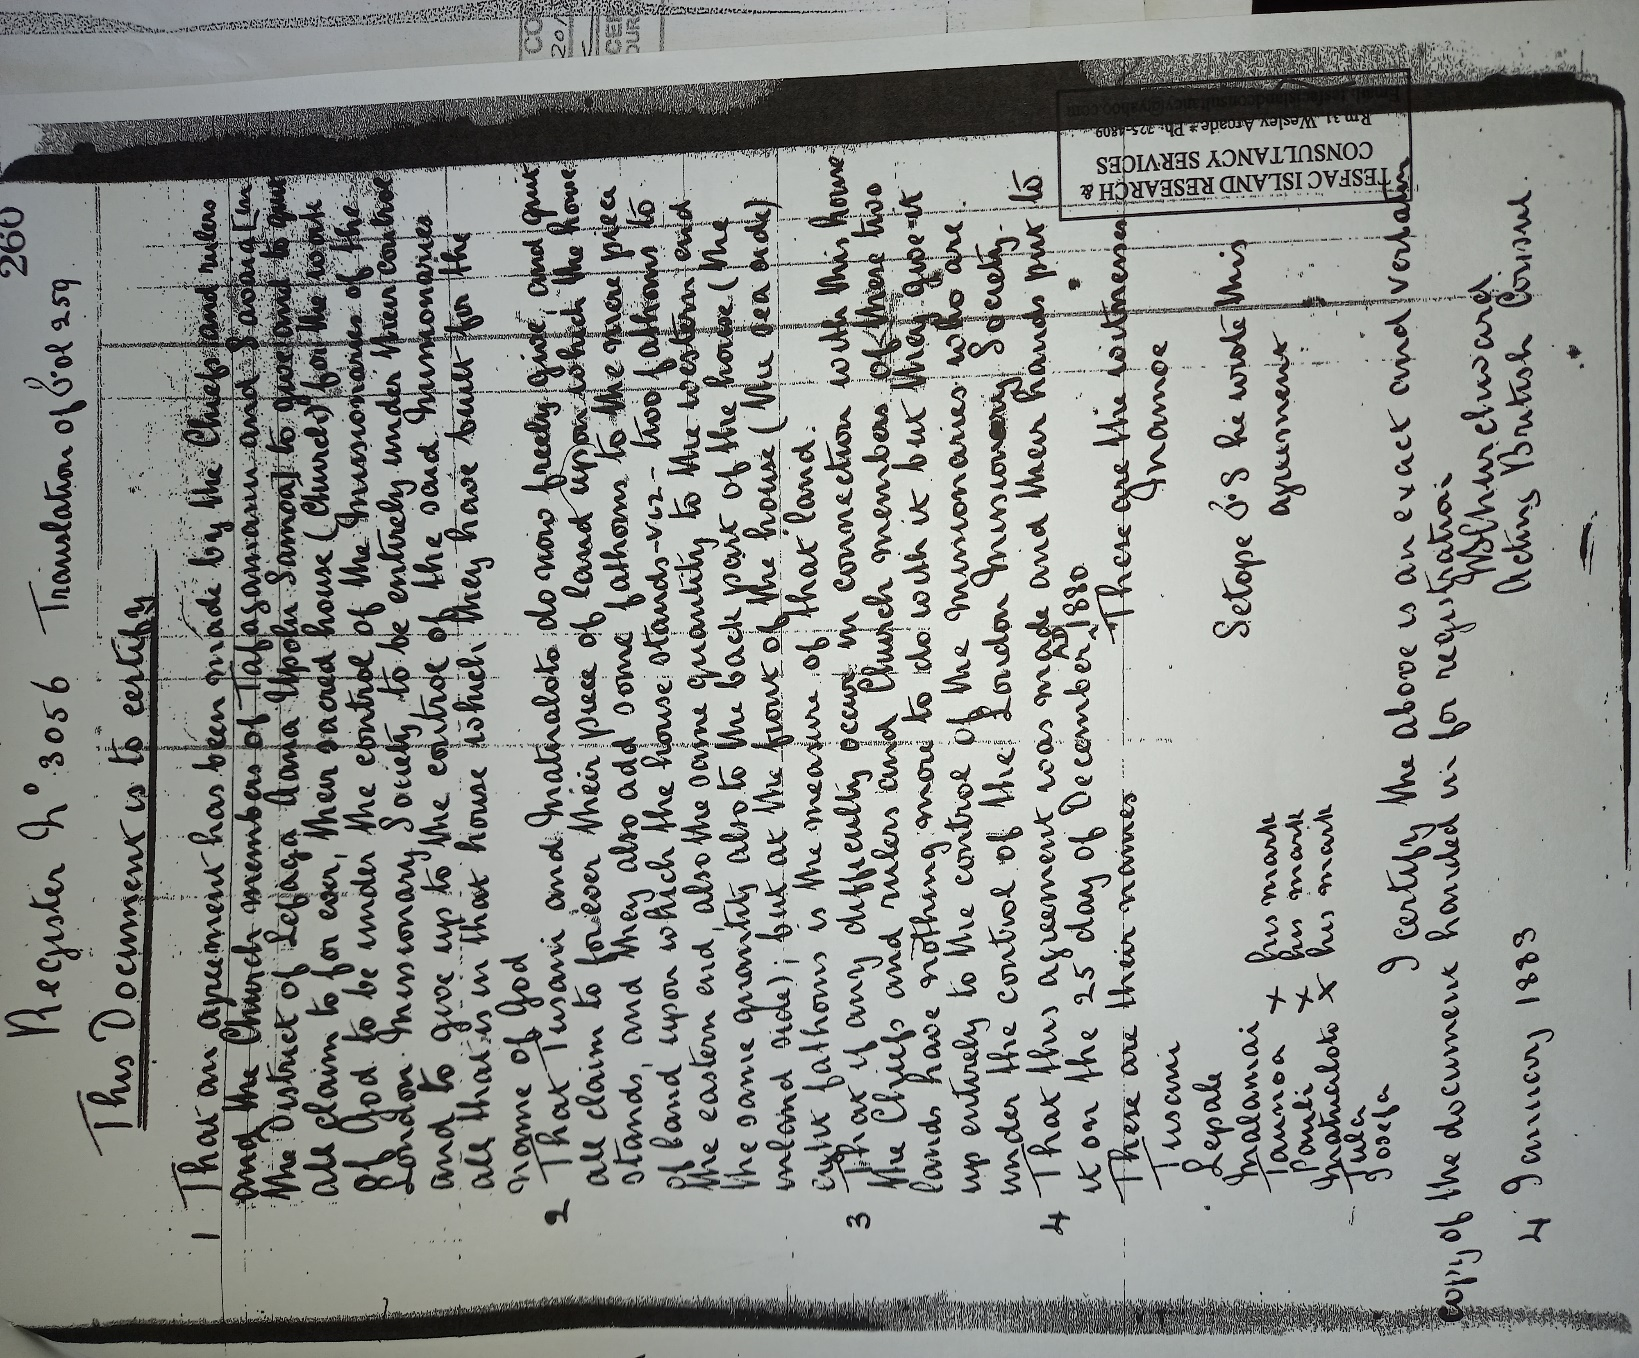 260
Register No 3056 Translation of Fol 259
This Document is to certify
1 That an agreement has been made by the Chiefs and rulers
and the Church members of Tafagamanu and Savaia in
the District of Lefaga Aana Upolu Samoa to give and to quit
all claim to for ever, their sacred house (Church) for the work
of God to be under the control of the Missionaries of the
London Missionary Society to be entirely under their control
and to give up to the control of the said Missionaries
all that is in that house which they have built for the
name of God
2 That Tusani and Matualoto do now freely give and quit
all claim to forever their piece of land upon which the house
stands, and they also add some fathoms to the mere piece
of land upon which the house stands - viz - two fathoms to
the eastern end, also the same quantity to the western end
the same quantity also to the back part of the house (the
inland side); but at the front of the house (the sea side)
eight fathoms is the measure of that land.
3 That if any difficulty occur in connection with this house
the Chiefs and rulers and Church members of these two
lands have nothing more to do with it but they give it
up entirely to the control of the missionaries who are
under the control of the London Missionary Society.
4 That this agreement was made and their hands put to
it on the 25 day of December AD 1880.
These are their names These are the witnesses
Tusani Inamoe
Lepale
Malamai Setope F.S he wrote this
Taumoa x his mark agreement
Pauli x his mark
Matualoto x his mark
Tula
Josefa
I certify the above is an exact and verbatim
copy of the document handed in for registration
WBChurchward
4 January 1883 Acting British Consul.
TESFAC ISLAND RESEARCH &
CONSULTANCY SERVICES
Rm 31, Wesley Arcade * Ph: 725-4809
CO
20/
CER
OUR